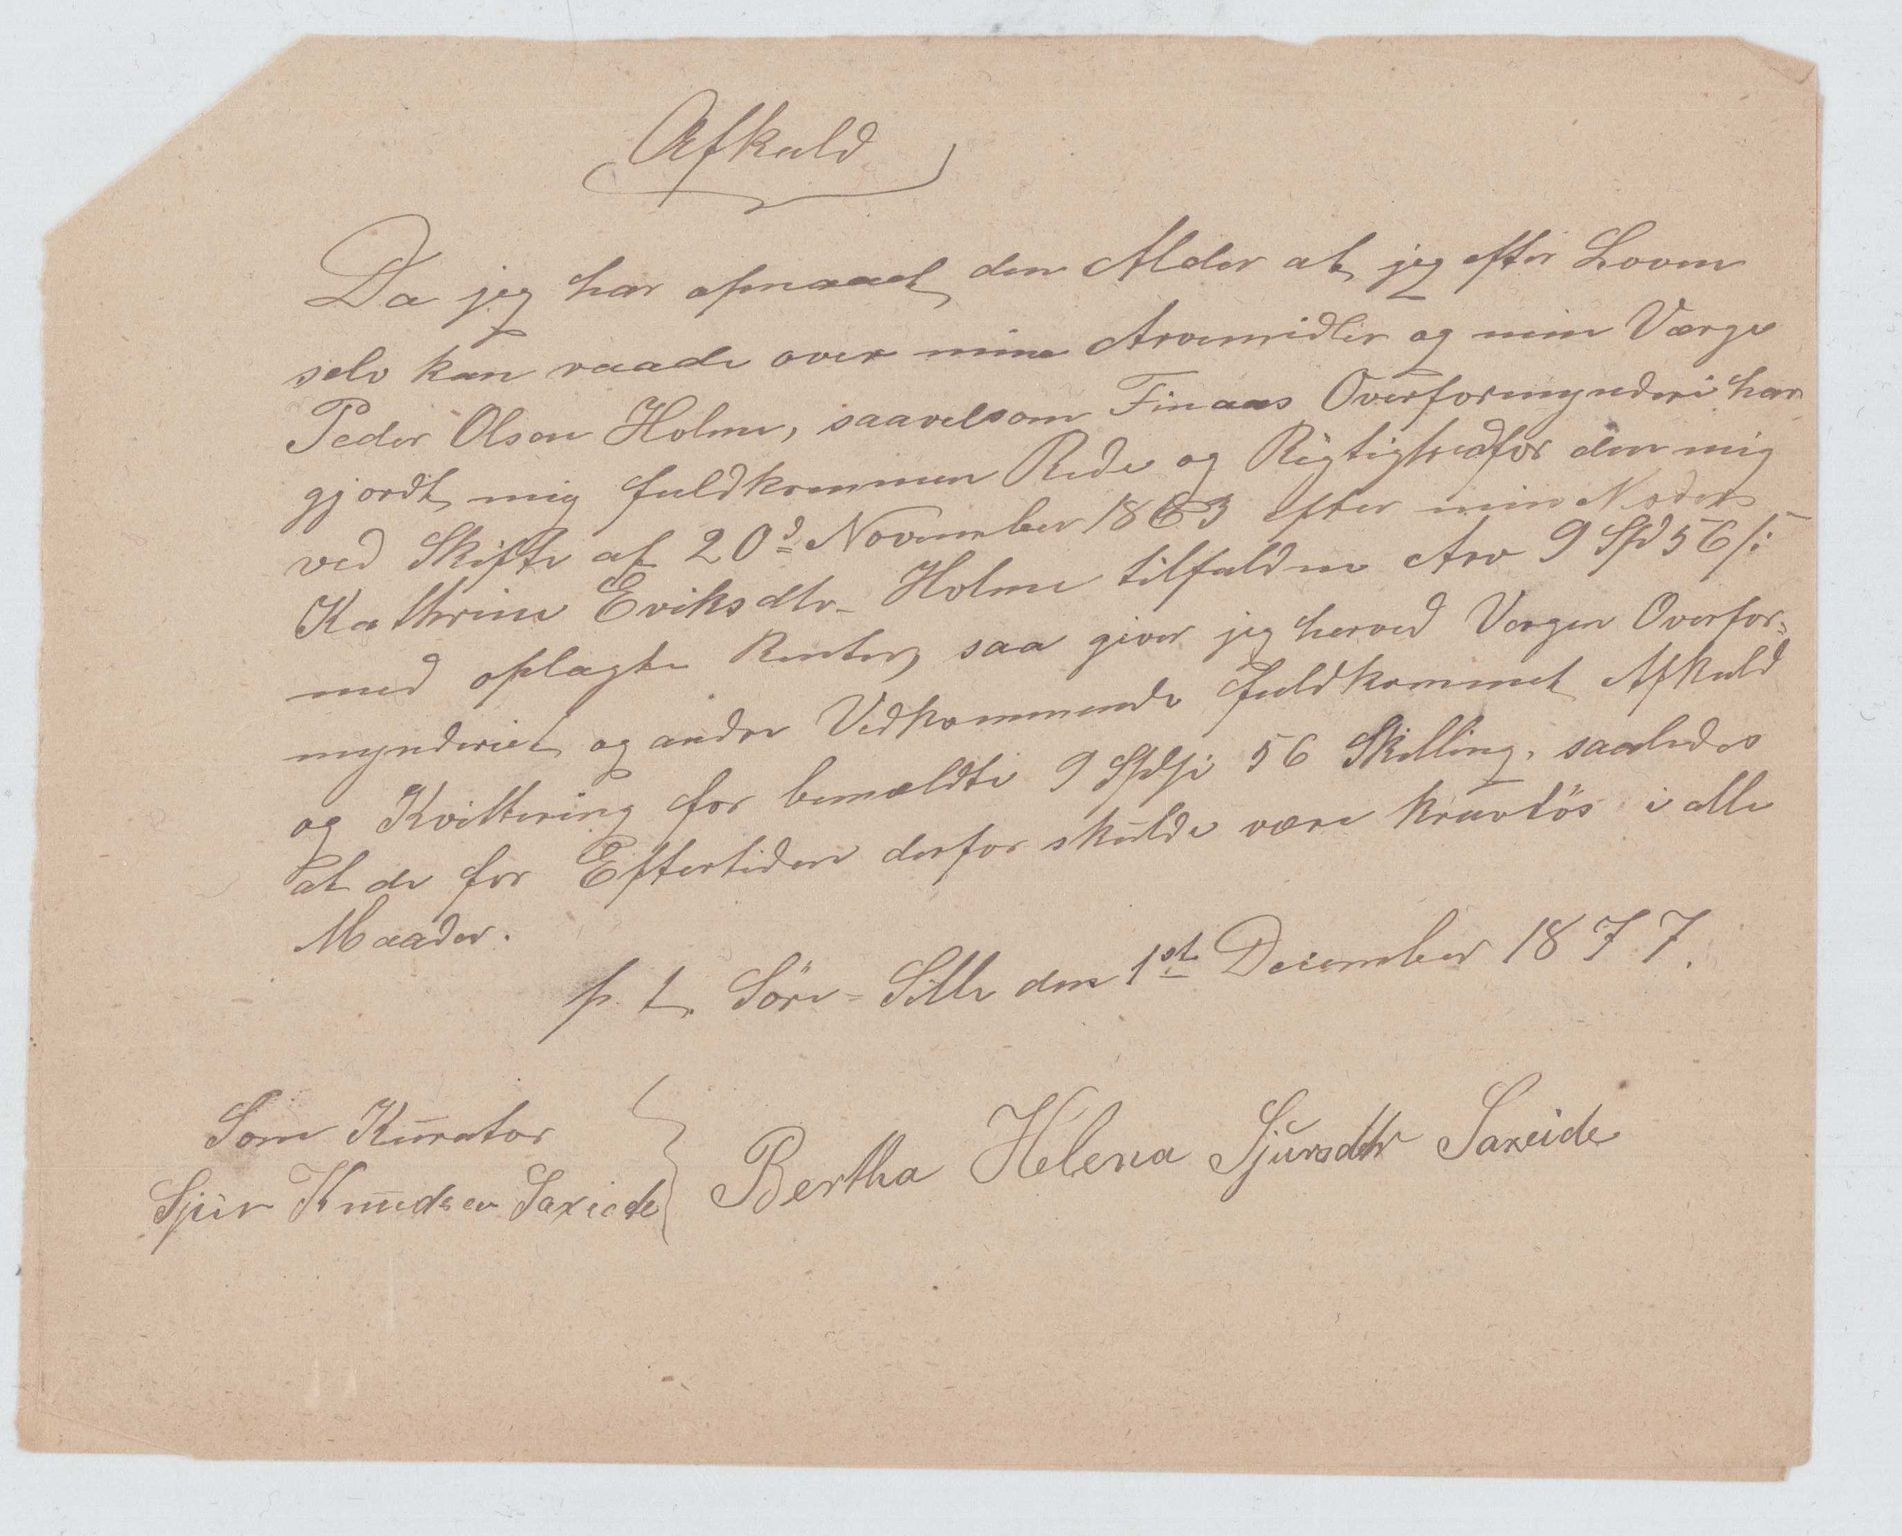 Afkald
Da jeg har opnaaet den Alder at jeg efter Loven
selv kan raade over mine Arvemidler og min Værge
Peder Olson Holme, saavelsom Finaas Overformynderi har
gjordt mig fuldkommen Rede og Rigtighed for den mig
ved Skifte af 20d November 1863 efter min Moder
Kathrine Eriksdtr. Holme tilfaldne Arv 9 Spd 56 s:
med oplagte Renter, saa giver jeg herved Vergen Overfor-
mynderiet og andre Vedkommende fuldkommet Afkald
og Kvittering for bemældte 9 Spds 56 Skilling, saaledes
at de for Eftertiden derfor skulde være kravløs i alle
Maader.
p. t. Söre-Lille den 1st December 1877.
Som Kurator
Sjur Knudsen Saxeide
Bertha Helena Sjursdtr Saxeide